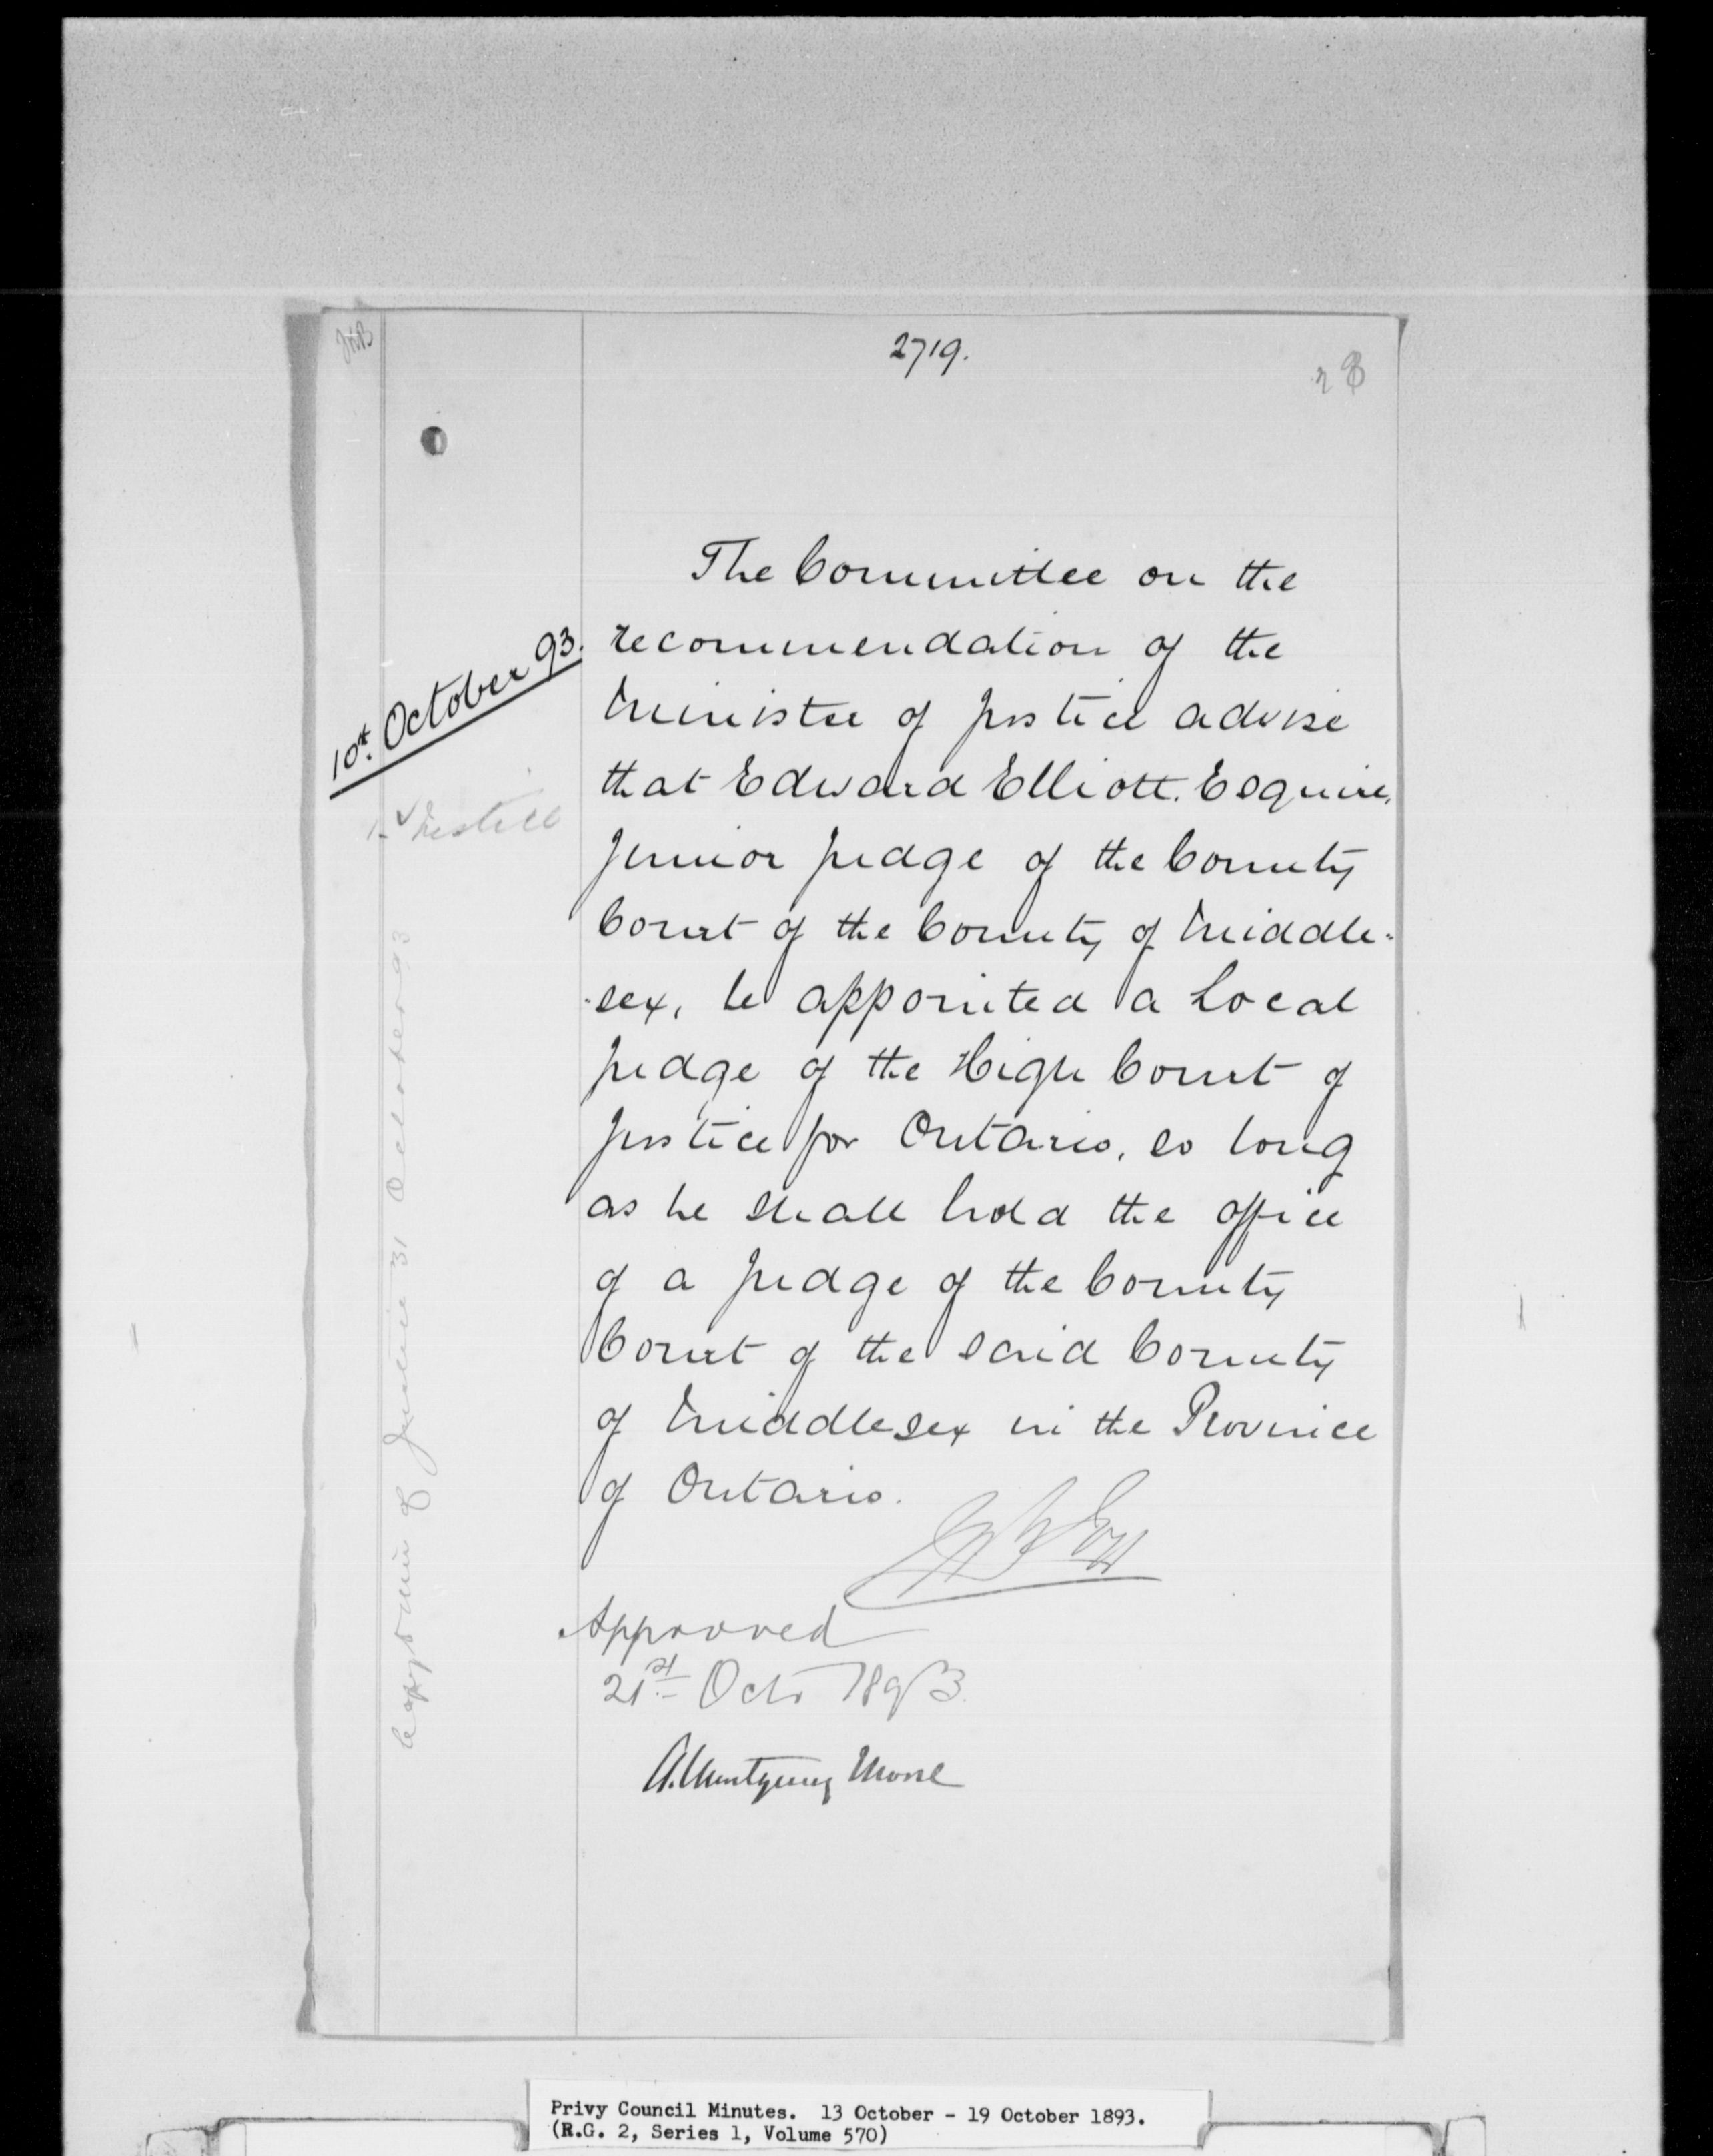 2719.
28
The Committee on the
recommendation of the
Minister of Justice advise
that Edward Elliott. Esquire,
Junior Judge of the County
Court of the County of Middle-
-sex, be appointed a Local
Judge of the High Court of
Justice for Ontario, so long
as he shall hold the office
of a Judge of the County
Court of the said County
of Middlesex in the Province
of Ontario.
10th October 93.
Justice
Copy to Min of Justice 31 October 93
Approved
21st Octr 1893.
A. Montgomery Moore
Privy Council Minutes. 13 October - 19 October 1893.
(R.G. 2, Series 1, Volume 570)